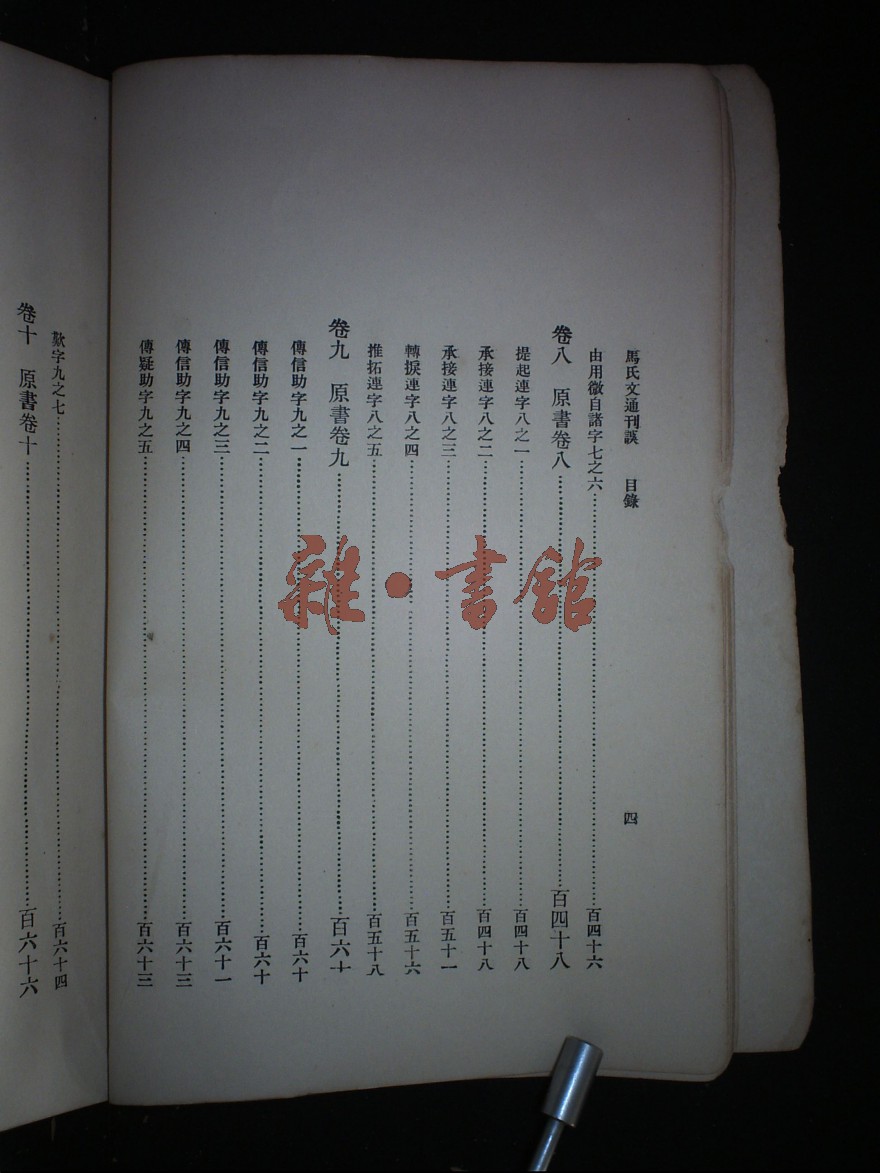 馬氏文通刊誤 目錄 四
由用微自諸字七之六 百四十六
卷八 原書卷八 百四十八
提起連字八之一 百四十八
承接連字八之二 百四十八
承接連字八之三 百五十一
轉捩連字八之四 百五十六
推拓連字八之五 百五十八
卷九 原書卷九 百六十
傳信助字九之一 百六十
傳信助字九之二 百六十
傳信助字九之三 百六十一
傳信助字九之四 百六十三
傳疑助字九之五 百六十三
歎字九之七 百六十四
卷十 原書卷十 百六十六
雜·書館